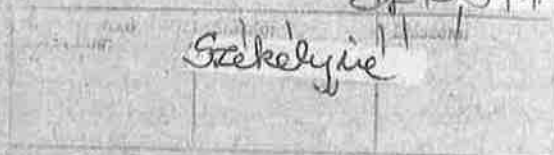 Székelyné